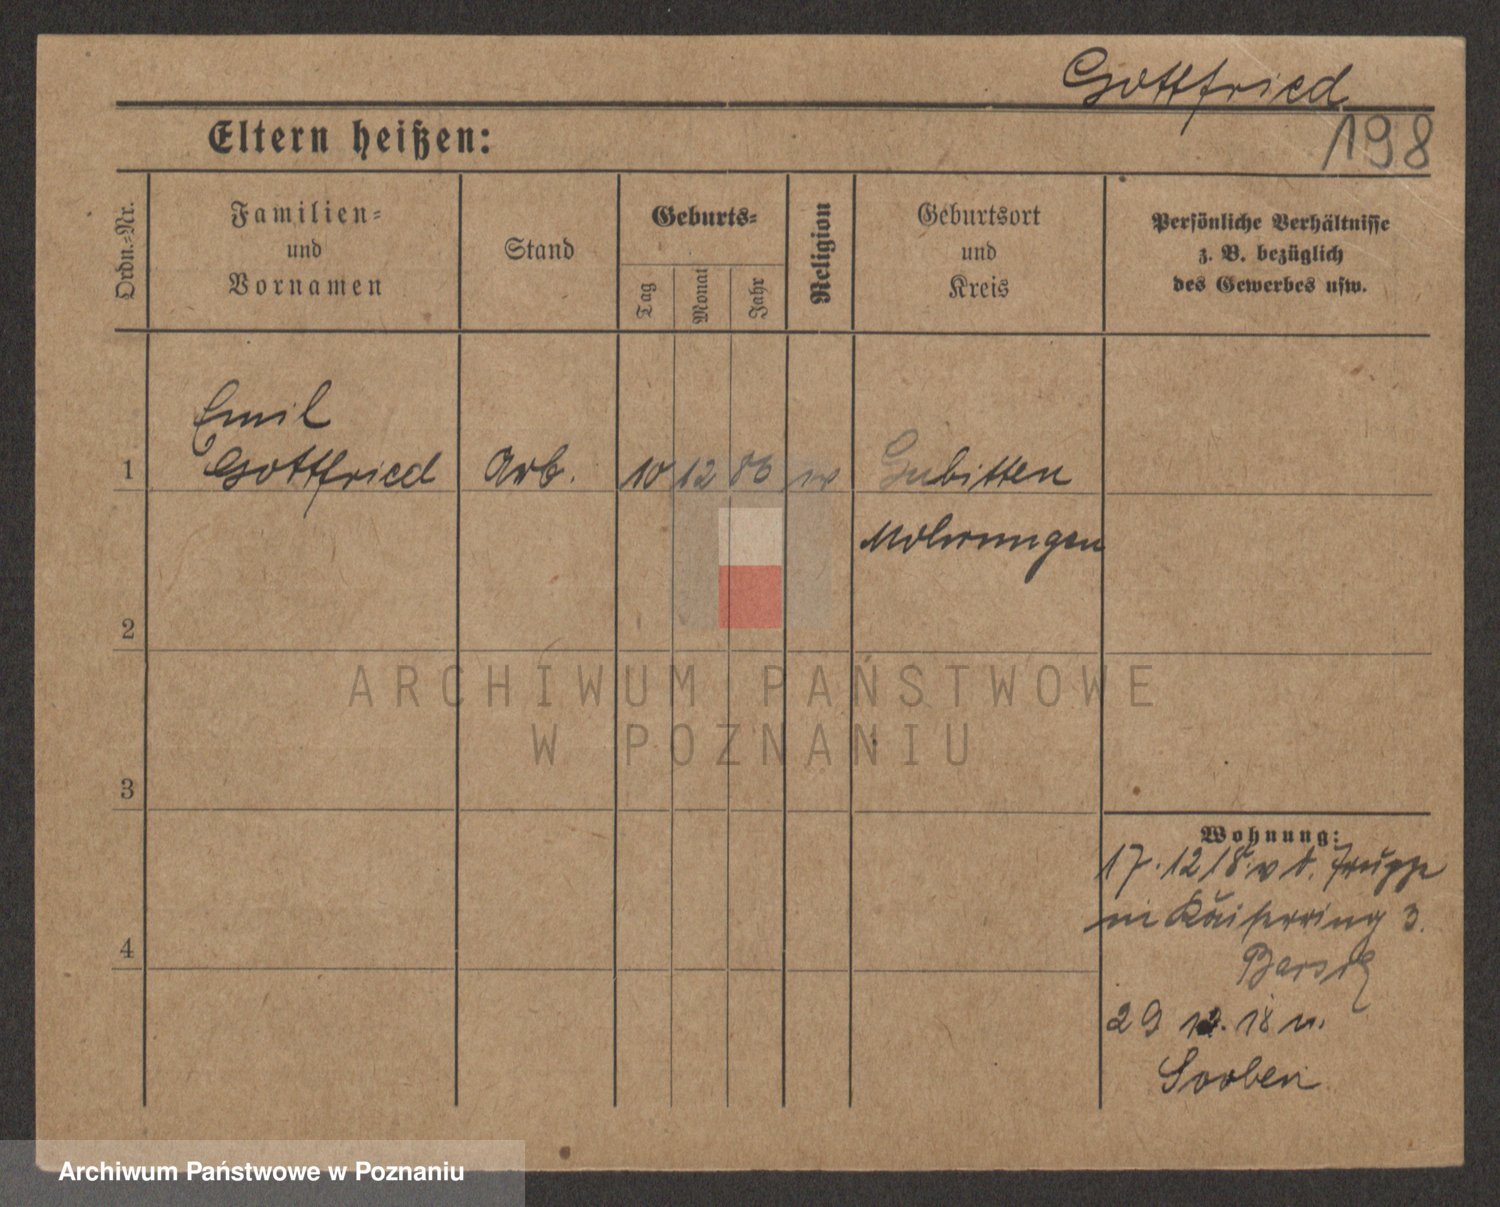 Gottfried
Eltern heißen:
198
Ordn.-Nr.
Familien-
und
Vornamen
Stand
Geburts-
Tag
Monat
Jahr
Religion
Geburtsort
und
Kreis
Persönliche Verhältnisse
z. B. bezüglich
des Gewerbes usw.
Emil
1 Gottfried Arb. 10 12 86 Gubitten
Mohrungen
2
ARCHIWUM PAŃSTWOWE
W POZNANIU
3
Wohnung:
17.12 18. v d. Truppe
Kaiserring 3.
4
29 12. 18 n.
Archiwum Państwowe w Poznaniu